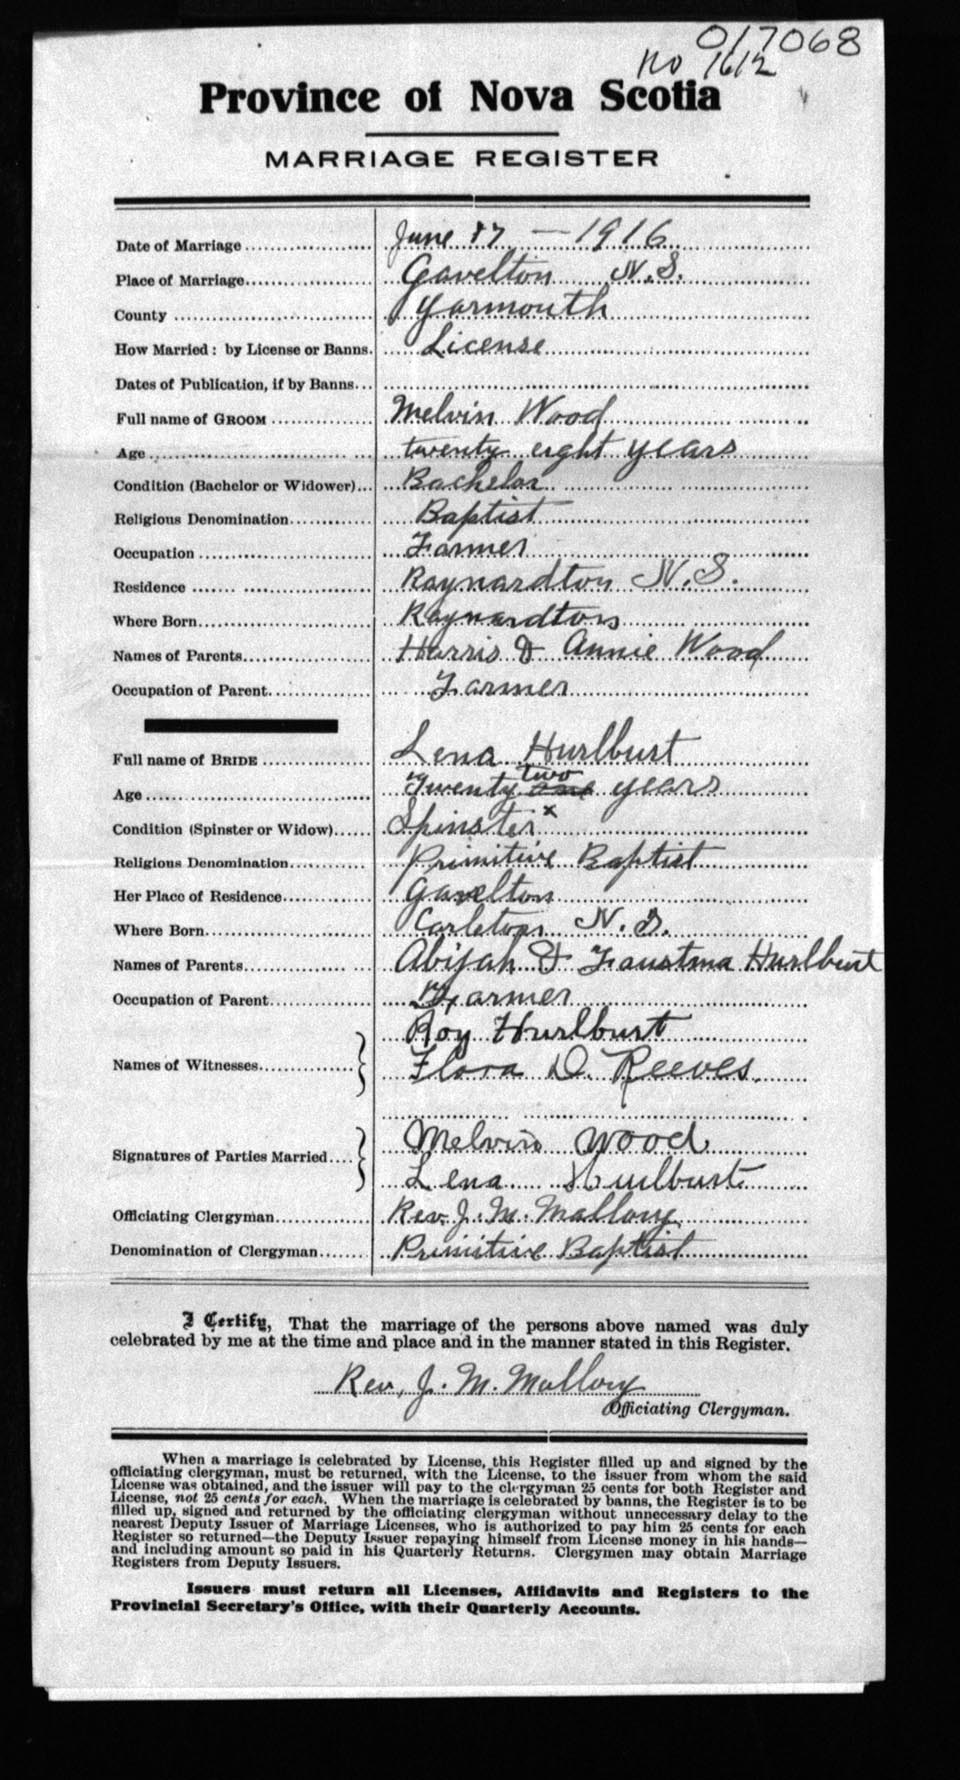 017068
No 1612
Province of Nova Scotia
MARRIAGE REGISTER
Date of Marriage June 17 — 1916
Place of Marriage Gavelton N.S.
County Yarmouth
How Married: by License or Banns. License
Dates of Publication, if by Banns
Full name of GROOM Melvin Wood
Age twenty eight years
Condition (Bachelor or Widower) Bachelor
Religious Denomination Baptist
Occupation Farmer
Residence Raynardton N.S.
Where Born Raynardton
Names of Parents Harris & Annie Wood
Occupation of Parent Farmer
Full name of BRIDE Lena Hurlburt
two
Age Twenty one years
Condition (Spinster or Widow) Spinster x
Religious Denomination Primitive Baptist
Her Place of Residence Gavelton
Where Born Carleton N.S.
Names of Parents Abijah & Faustina Hurlburt
Occupation of Parent Farmer
Roy Hurlburt
Names of Witnesses Flora D. Reeves
Melvin Wood
Signatures of Parties Married
Lena Hurlburt
Officiating Clergyman Rev. J. M. Mallory
Denomination of Clergyman Primitive Baptist
I Certify, That the marriage of the persons above named was duly
celebrated by me at the time and place and in the manner stated in this Register.
Rev. J. M. Mallory
Officiating Clergyman.
When a marriage is celebrated by License, this Register filled up and signed by the
officiating clergyman, must be returned, with the License, to the issuer from whom the said
License was obtained, and the issuer will pay to the clergyman 25 cents for both Register and
License, not 25 cents for each. When the marriage is celebrated by banns, the Register is to be
filled up, signed and returned by the officiating clergyman without unnecessary delay to the
nearest Deputy Issuer of Marriage Licenses, who is authorized to pay him 25 cents for each
Register so returned—the Deputy Issuer repaying himself from License money in his hands—
and including amount so paid in his Quarterly Returns. Clergymen may obtain Marriage
Registers from Deputy Issuers.
Issuers must return all Licenses, Affidavits and Registers to the
Provincial Secretary's Office, with their Quarterly Accounts.